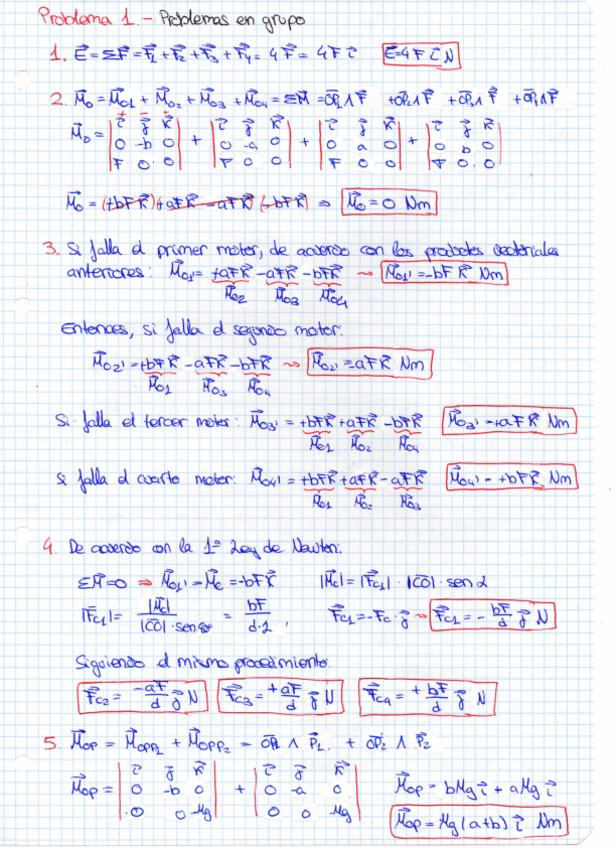 Problema 1.- Problemas en grupo
1. E⃗ = ΣF⃗ = F⃗₁ + F⃗₂ + F⃗₃ + F⃗₄ = 4F⃗ = 4F i⃗   E⃗ = 4F i⃗ N
2. M⃗o = M⃗o1 + M⃗o2 + M⃗o3 + M⃗o4 = ΣM⃗ = OP₁∧F⃗ + OP₂∧F⃗ + OP₃∧F⃗ + OP₄∧F⃗
M⃗o = | i⃗ j⃗ k⃗ | + | i⃗ j⃗ k⃗ | + | i⃗ j⃗ k⃗ | + | i⃗ j⃗ k⃗ |
| 0 -b 0 | | 0 -a 0 | | 0 a 0 | | 0 b 0 |
| F 0 0 | | F 0 0 | | F 0 0 | | F 0 0 |
M⃗o = (+bFk⃗) + aFk⃗ - aFk⃗ (-bFk⃗) ⇒ M⃗o = 0 Nm
3. Si falla el primer motor, de acuerdo con los productos vectoriales
anteriores: M⃗o1' = +aFk⃗ - aFk⃗ - bFk⃗ ⇝ M⃗o1' = -bF k⃗ Nm
M⃗o2 M⃗o3 M⃗o4
Entonces, si falla el segundo motor:
M⃗o2' = +bFk⃗ - aFk⃗ - bFk⃗ ⇝ M⃗o2' = -aFk⃗ Nm
M⃗o1 M⃗o3 M⃗o4
Si falla el tercer motor: M⃗o3' = +bFk⃗ + aFk⃗ - bFk⃗   M⃗o3' = +aFk⃗ Nm
M⃗o1 M⃗o2 M⃗o4
Si falla el cuarto motor: M⃗o4' = +bFk⃗ + aFk⃗ - aFk⃗   M⃗o4' = +bFk⃗ Nm
M⃗o1 M⃗o2 M⃗o3
4. De acuerdo con la 1ª Ley de Newton:
ΣM⃗ = 0 ⇒ M⃗o1' - M⃗c = -bFk⃗   |M⃗c| = |F⃗c1| · |CO| · sen 2
|F⃗c1| = |M⃗c| / |CO| · sen 90 = bF / d·2 ,   F⃗c1 = -Fc · j⃗ ⇝ F⃗c1 = - bF/d j⃗ N
Siguiendo el mismo procedimiento:
F⃗c2 = -aF/d j⃗ N   F⃗c3 = +aF/d j⃗ N   F⃗c4 = +bF/d j⃗ N
5. M⃗op = M⃗opp₁ + M⃗opp₂ = OP₁ ∧ P⃗₁ + OP₂ ∧ P⃗₂
M⃗op = | i⃗ j⃗ k⃗ | + | i⃗ j⃗ k⃗ |   M⃗op = bMg i⃗ + aMg i⃗
| 0 -b 0 | | 0 -a 0 |
| 0 0 -Mg | | 0 0 Mg |   M⃗op = Mg(a+b) i⃗ Nm